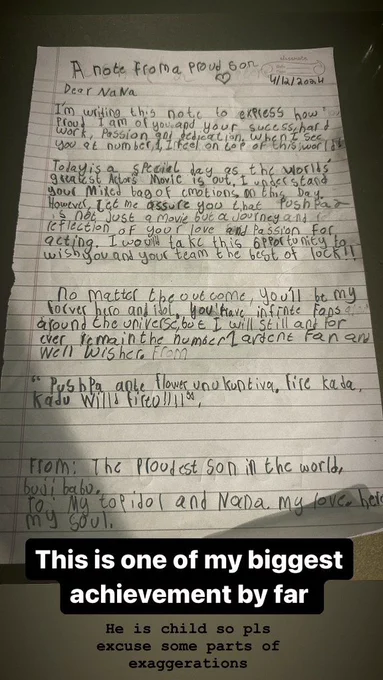 A note from a proud son
4/12/2024
Dear NaNa
I'm writing this note to express how
Proud I am of you and your sucess, hard
work, Passion and dedication. When I see
you at number 1, I feel on top of this world.
Today is a special day as the worlds'
greatest Actors Movie is out. I understand
your Mixed bag of emotions on this Day.
However, Let me assure you that Pushpa2
is not just a movie but a journey and
reflection of your love and Passion for
acting. I would take this opportunity to
wish you and your team the best of lock!!
No matter the outcome, you'll be my
forver hero and idol. You have infinte Fans
around the universe, but I will still and for
ever remain the number 1 ardent Fan and
well wisher. From
" Pushpa ante flower unukuntiva. Fire kada,
Kadu Willd fireo!!!!",
From: The Proudest Son in the world,
buji babu.
To: My top idol and Nana my love, hero
my soul.
This is one of my biggest
achievement by far
He is child so pls
excuse some parts of
exaggerations